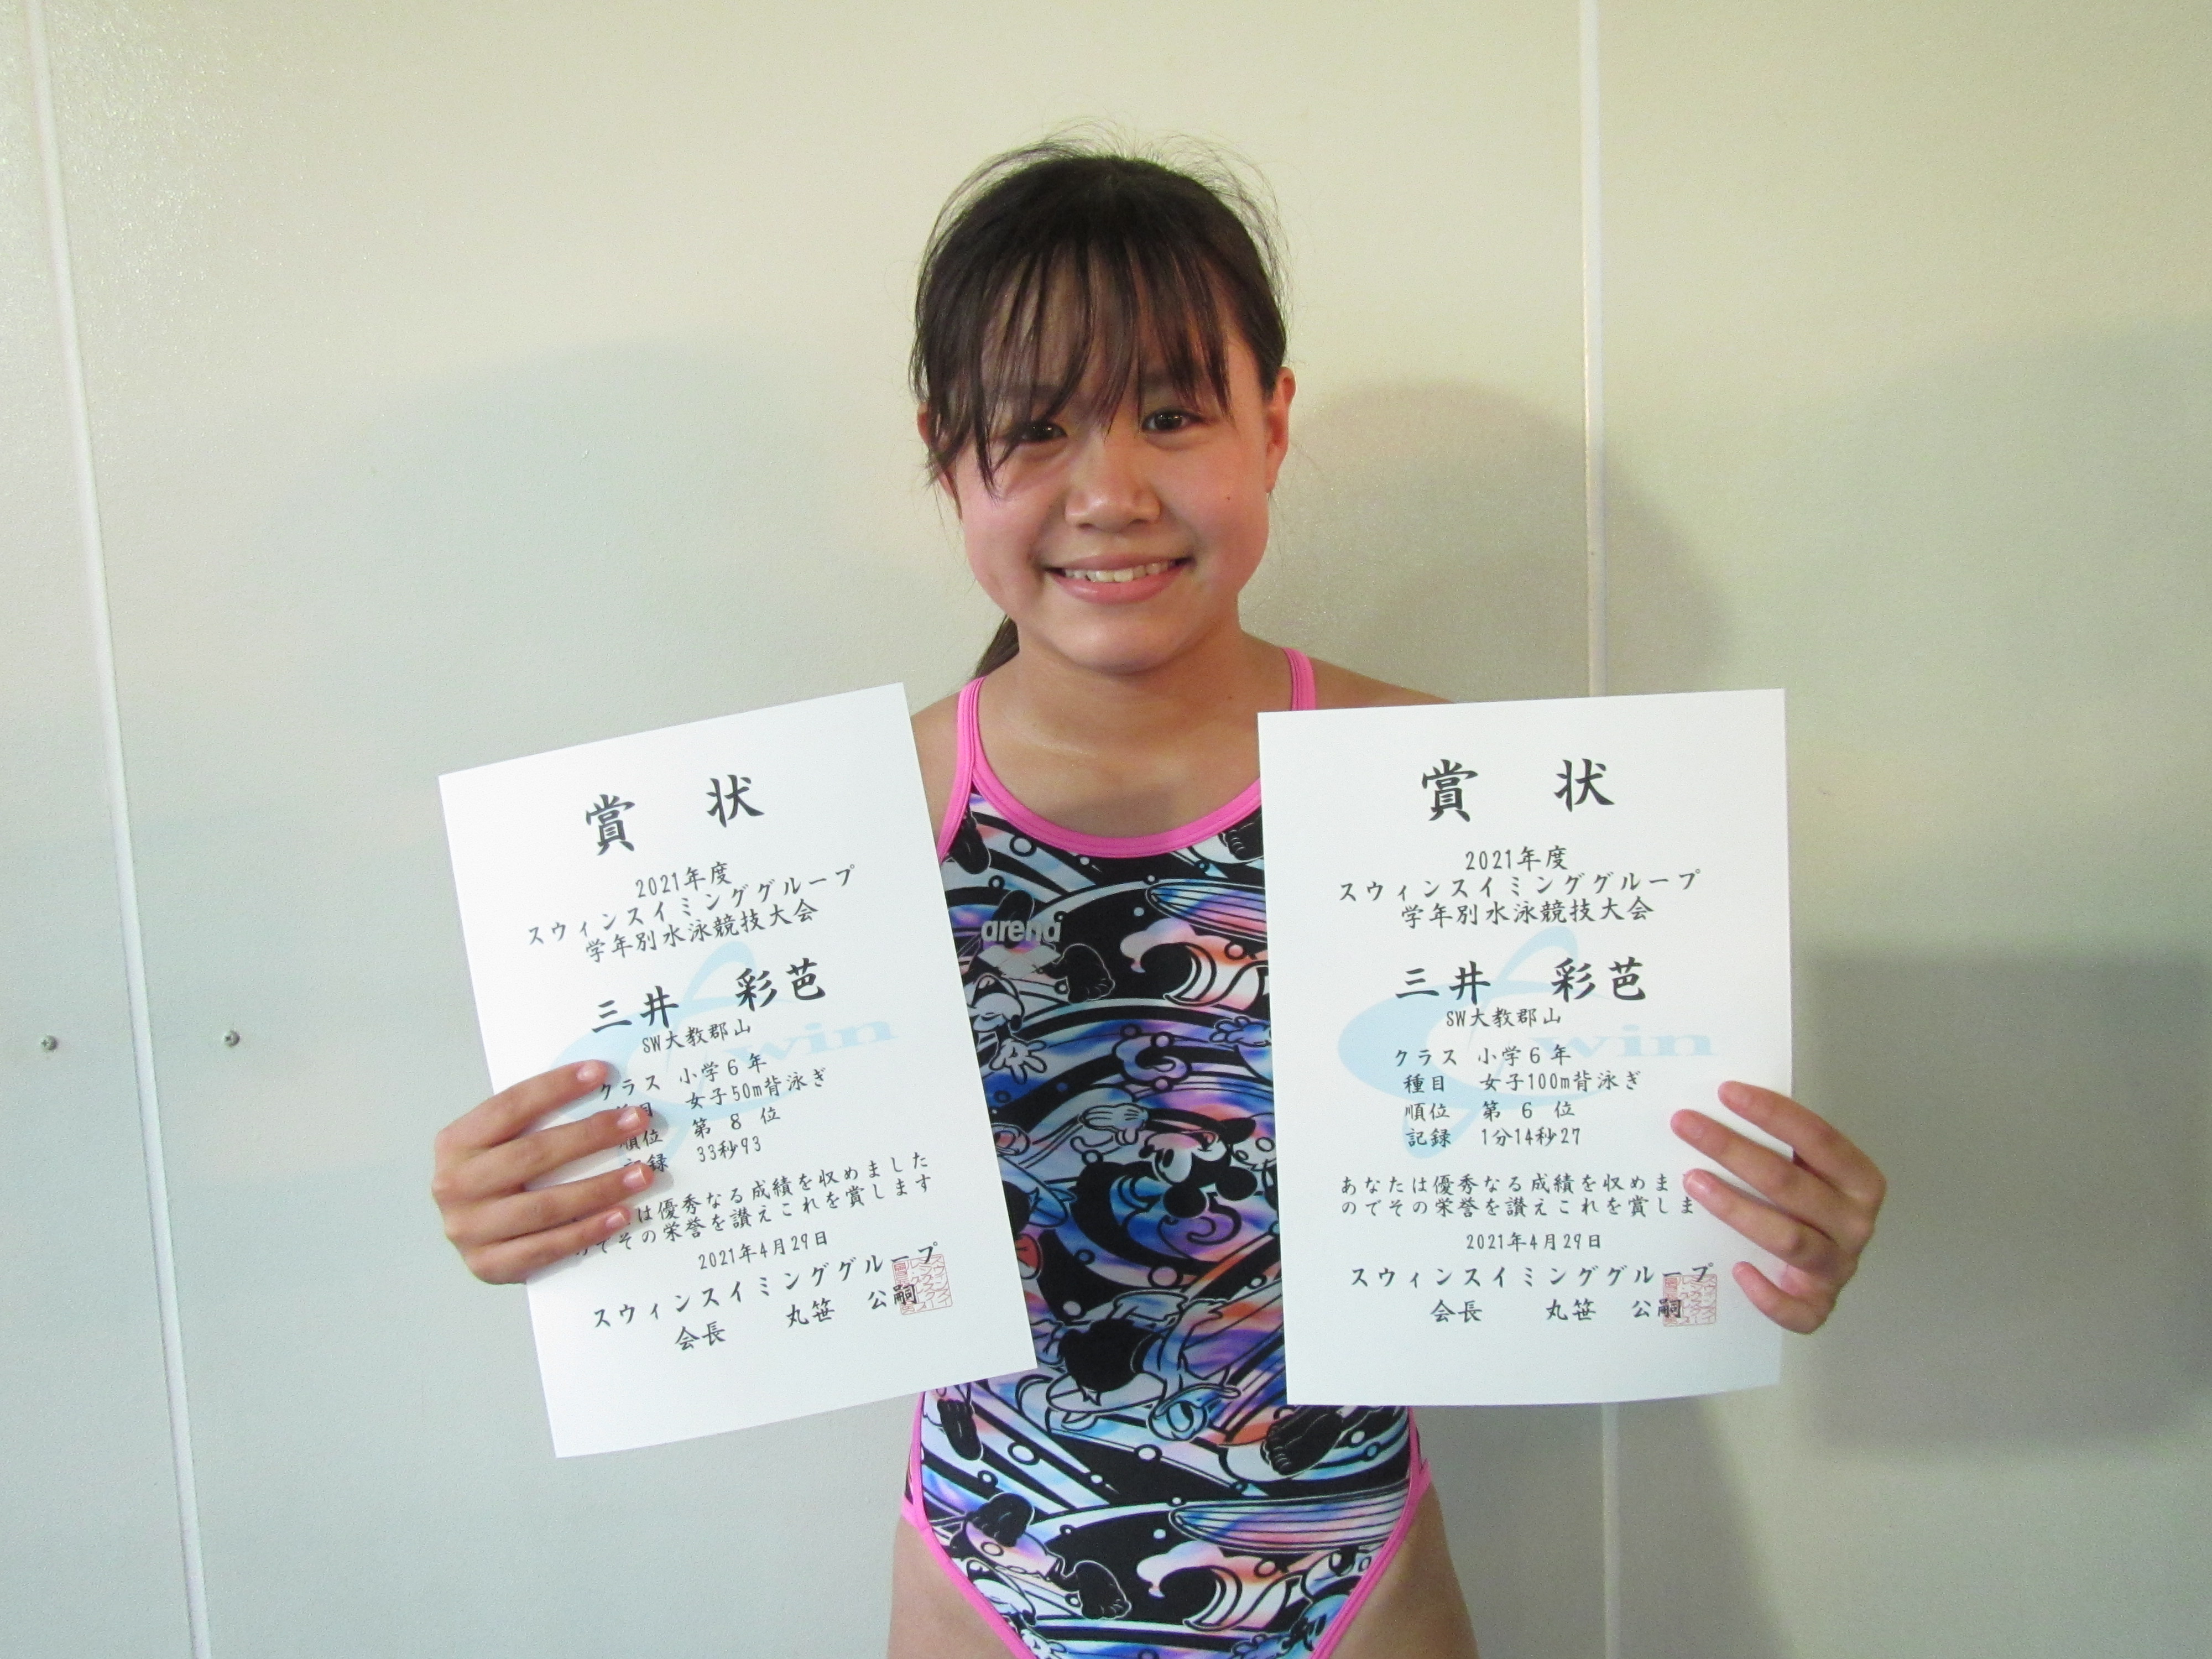 賞 状
2021年度
スウィンスイミンググループ
学年別水泳競技大会
三井 彩芭
SW大教郡山
クラス 小学6年
女子50m背泳ぎ
順位 第 8 位
記録 33秒93
は優秀なる成績を収めました
のでその栄誉を讃えこれを賞します
2021年4月29日
スウィンスイミンググループ
会長 丸笹 公嗣
win
arena
賞 状
2021年度
スウィンスイミンググループ
学年別水泳競技大会
三井 彩芭
SW大教郡山
クラス 小学6年
種目 女子100m背泳ぎ
順位 第 6 位
記録 1分14秒27
あなたは優秀なる成績を収めま
のでその栄誉を讃えこれを賞しま
2021年4月29日
スウィンスイミンググループ
会長 丸笹 公嗣
win